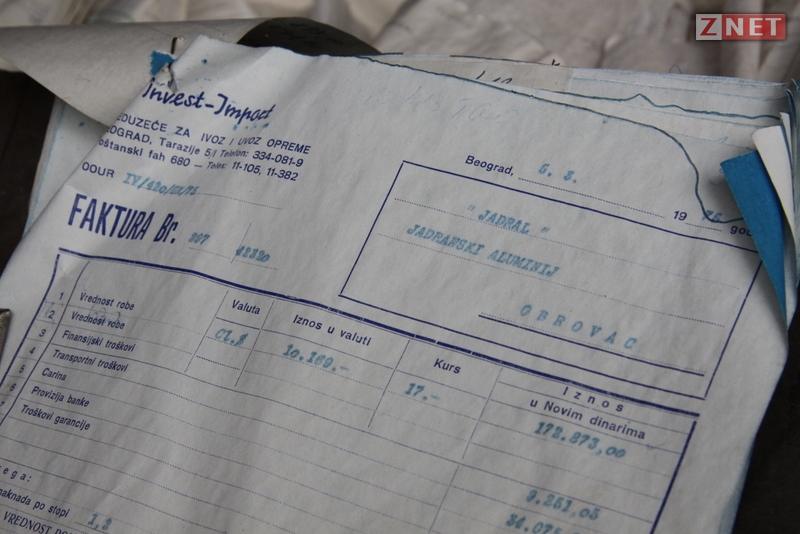 ZNET
Invest-Import
EDUZEĆE ZA IVOZ I UVOZ OPREME
OGRAD, Tarazije 5/I Telefon: 334-081-9
oštanski fah 680 — Telex: 11-105, 11-382
OOUR
Beograd, 5. 3. 19 76 god
FAKTURA Br. 42320
"JADRAL"
JADRANSKI ALUMINIJ
OBROVAC
Valuta
Iznos u valuti
Kurs
Iznos
u Novim dinarima
1 Vrednost robe Cl.$ 10.169.- 17.- 172.873,00
2 Vrednost robe
3 Finansijski troškovi
4 Transportni troškovi
5 Carina 9.251,05
6 Provizija banke
7 Troškovi garancije
ega:
naknada po stopi 1,2
VREDNOST